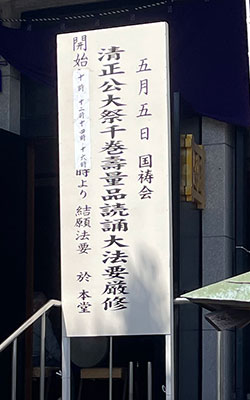 五月五日 国祷会
清正公大祭千巻壽量品読誦大法要厳修
開始 十時 十二時 十四時 十六時 時より 結願法要 於 本堂